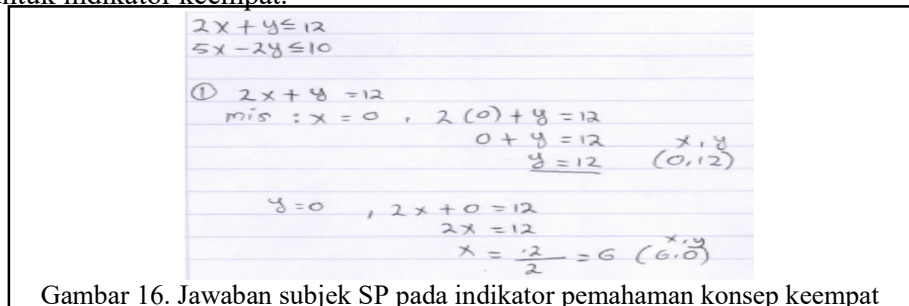 untuk indikator keempat.
2x + y ≤ 12
5x - 2y ≤ 10
① 2x + y = 12
mis : x = 0 , 2(0) + y = 12
0 + y = 12 x , y
y = 12 (0,12)
y = 0 , 2x + 0 = 12
2x = 12
x = 12/2 = 6 (6.0) x,y
Gambar 16. Jawaban subjek SP pada indikator pemahaman konsep keempat